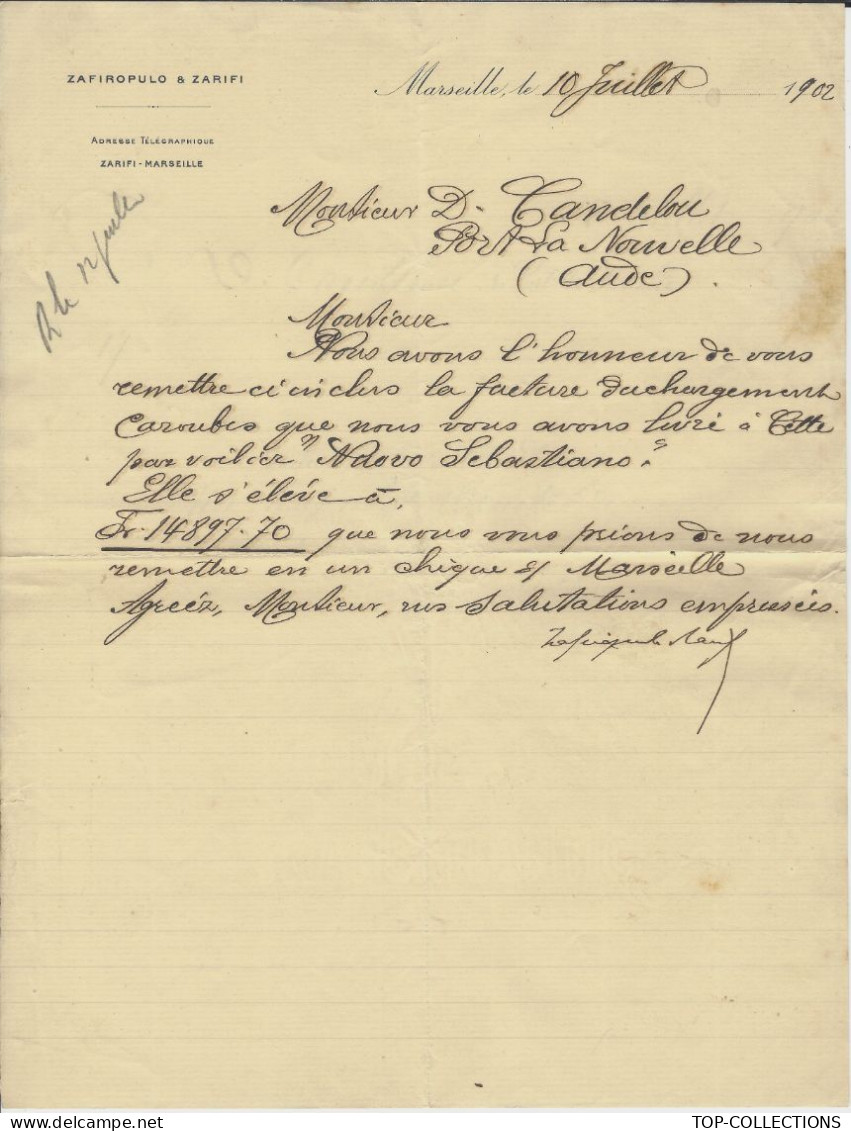 ZAFIROPULO & ZARIFI
Marseille, le 10 Juillet 1902
ADRESSE TÉLÉGRAPHIQUE
ZARIFI-MARSEILLE
R le 12 juillet
Monsieur D. Candelou
Port La Nouvelle
(Aude).
Monsieur
Nous avons l'honneur de vous
remettre ci inclus la facture du chargement
Caroubes que nous vous avons livré à Cette
par voilier "Nuovo Sebastiano."
Elle s'élève à,
Fr. 14897.70 que nous vous prions de nous
remettre en un chèque s/ Marseille
Agréez, Monsieur, nos salutations empressées.
Zafiropulo Zarifi
TOP-COLLECTIONS